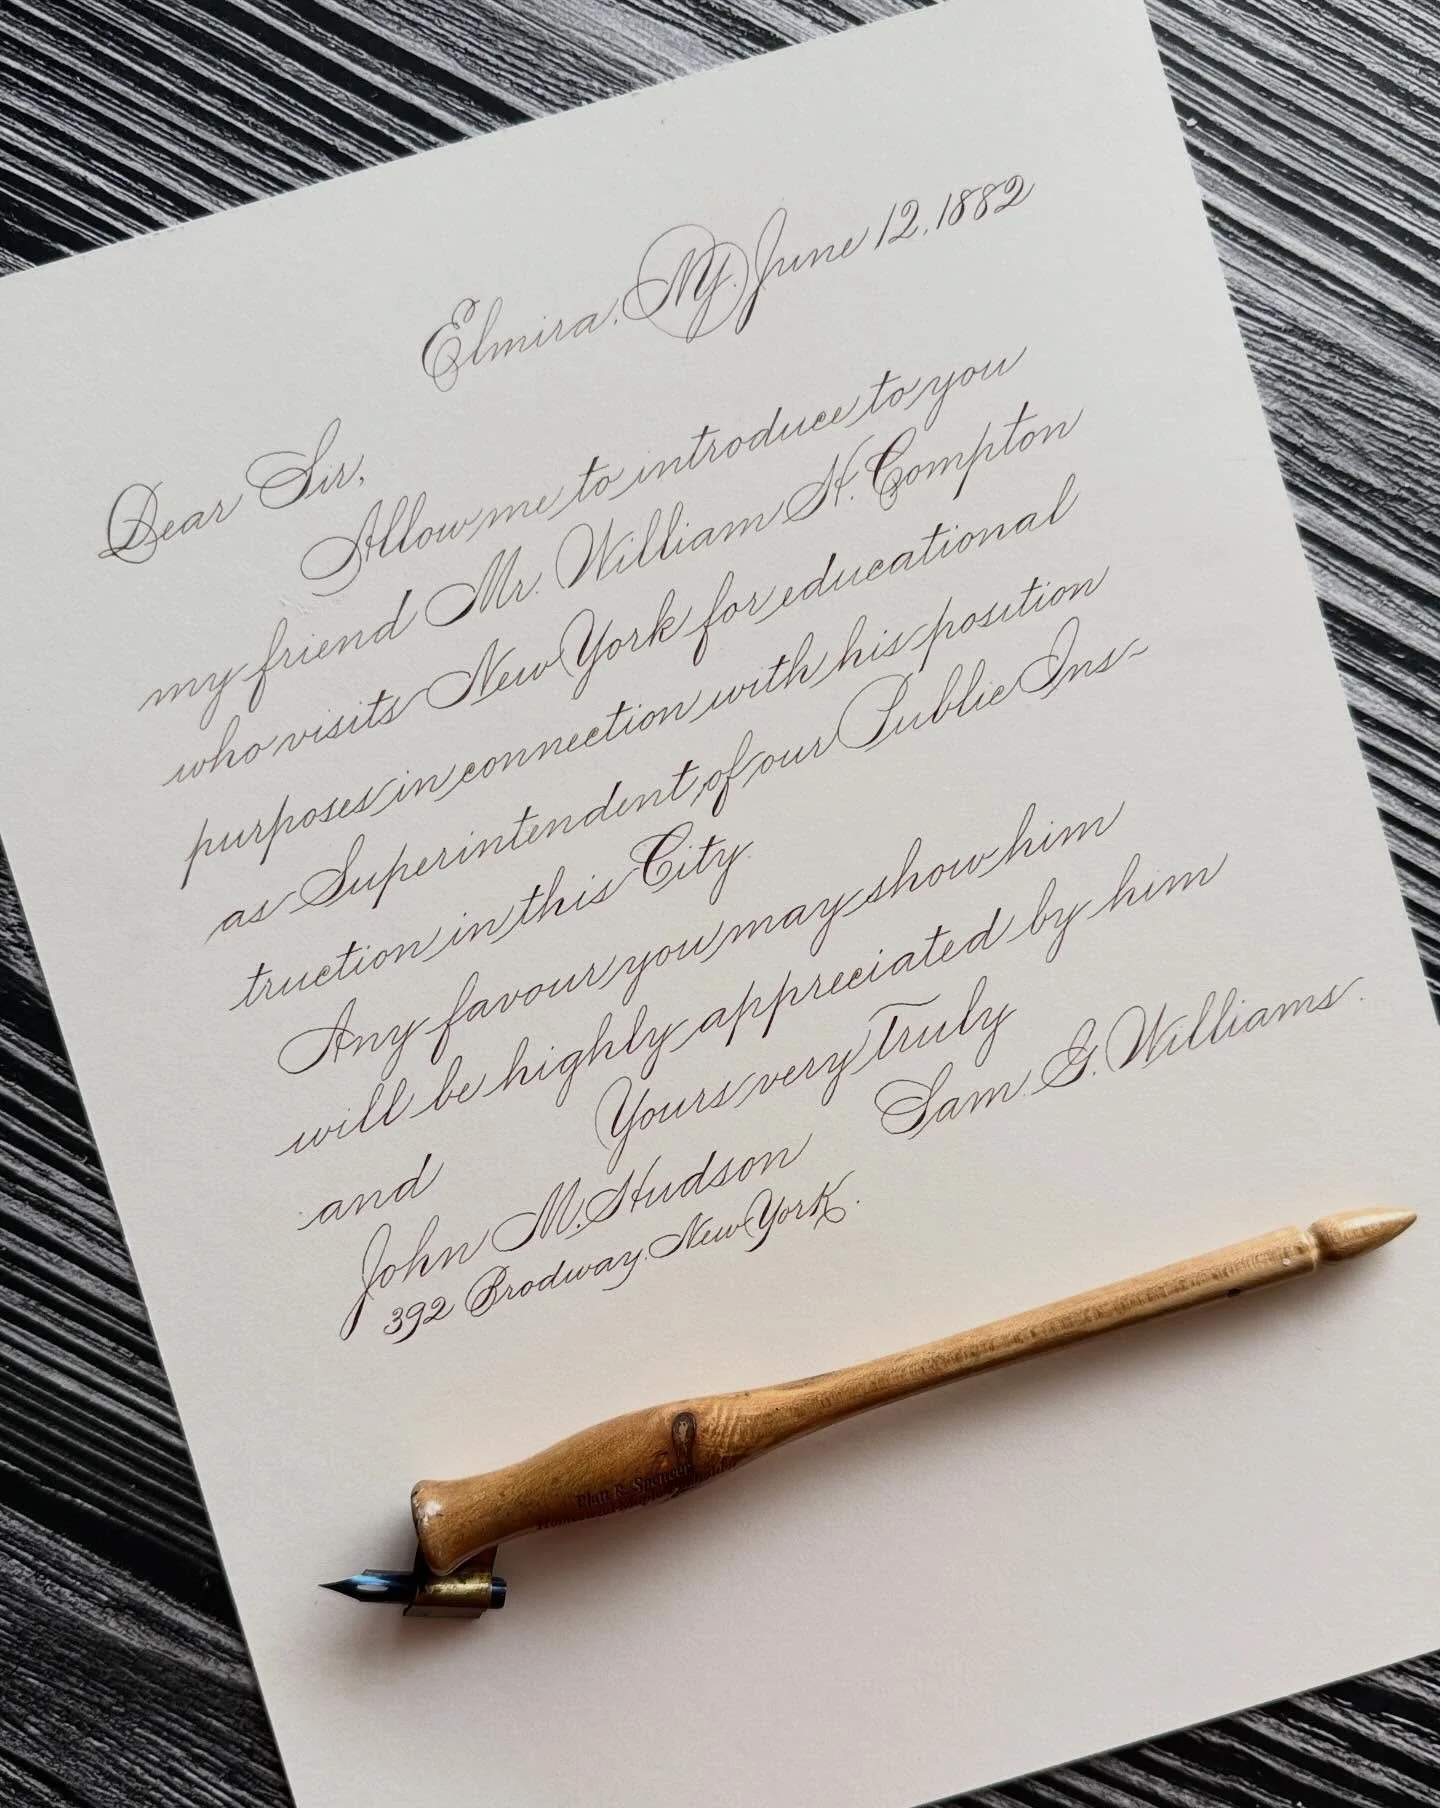 Elmira, N.Y. June 12, 1882
Dear Sir,
Allow me to introduce to you
my friend Mr. William H. Compton
who visits New York for educational
purposes in connection with his position
as Superintendent of our Public Ins-
truction in this City.
Any favour you may show him
will be highly appreciated by him
and Yours very Truly
Sam. G. Williams.
John M. Hudson
392 Brodway. New York.
Platt R. Spencer